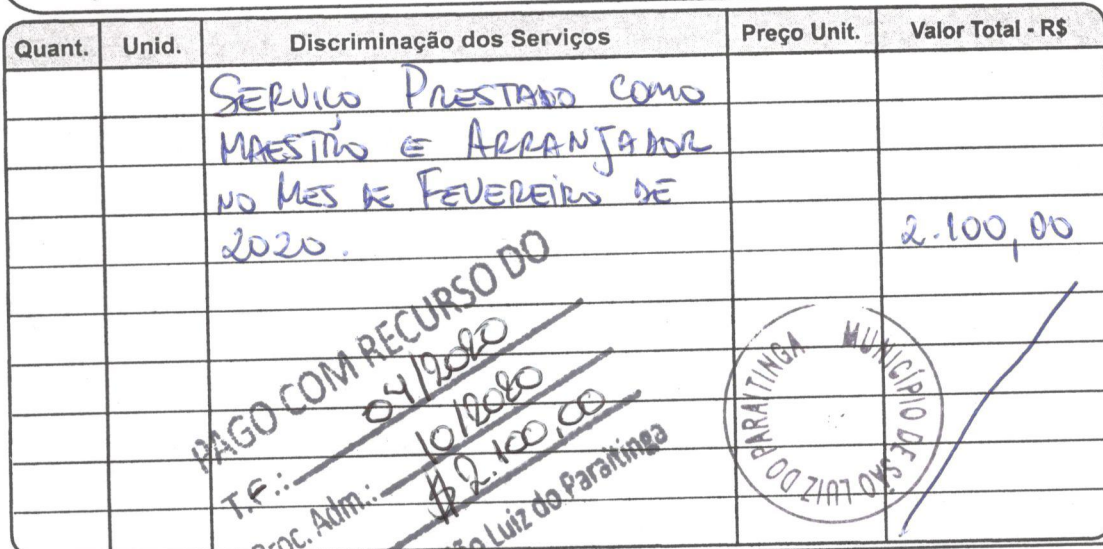 Quant. Unid. Discriminação dos Serviços Preço Unit. Valor Total - R$
SERVIÇO PRESTADO COMO
MAESTRO E ARRANJADOR
NO MES DE FEVEREIRO DE
2020. 2.100,00
PAGO COM RECURSO DO
04/2020
T.F.: 10/2020
Proc. Adm.: $ 2.100,00
São Luiz do Paraitinga
MUNICÍPIO DE SÃO LUIZ DO PARAITINGA